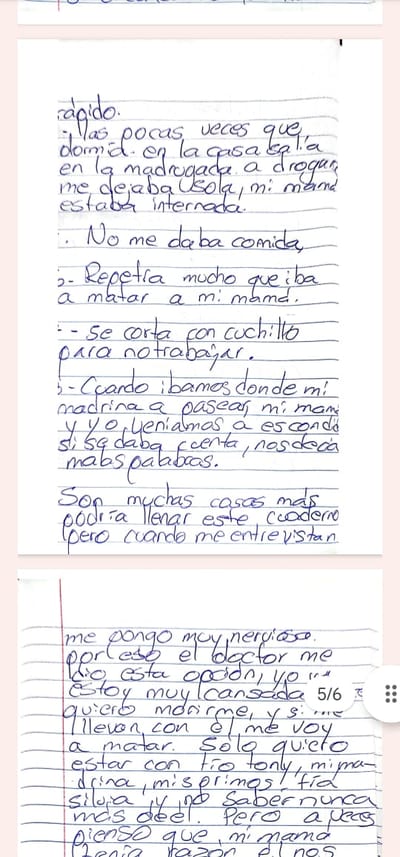 rápido.
las pocas veces que
dormía en la casa salía
en la madrugada a drogar,
me dejaba sola, mi mamá
estaba internada.
No me daba comida,
- Repetía mucho que iba
a matar a mi mamá.
- Se corta con cuchillo
para no trabajar.
- Cuando ibamos donde mi
madrina a pasear, mi mam
y yo, veníamos a escondi
si se daba cuenta, nos decía
malas palabras.
Son muchas cosas más
podría llenar este cuaderno
pero cuando me entrevistan
me pongo muy nerviosa.
por eso el doctor me
dio esta opción, yo
estoy muy cansada 5/6
quiero morirme, y si me
llevan con el me voy
a matar. Solo quiero
estar con tío tony, mi ma-
drina, mis primos, tía
silvia y no saber nunca
más de el. Pero a veces
pienso que mi mamá
tenía razón el nos